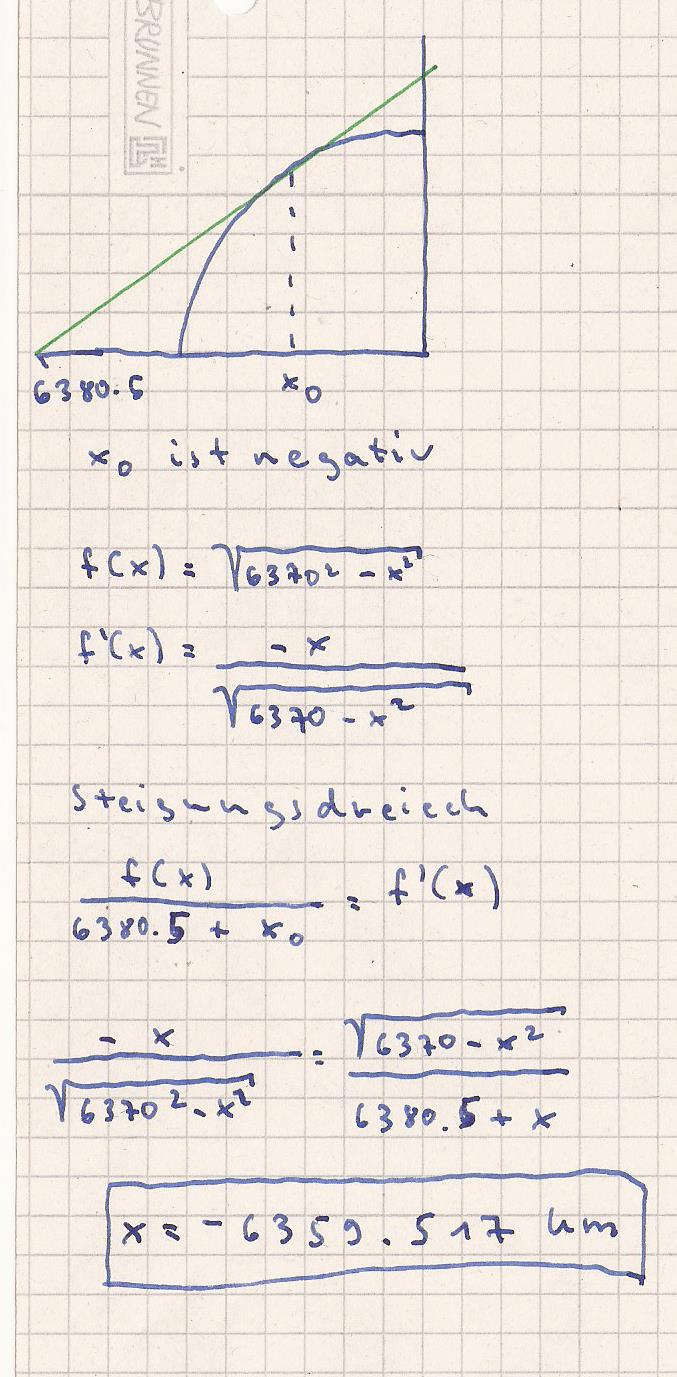 BRUNNEN
6380.5
x₀
x₀ ist negativ
f(x) = √(6370² - x²)
f'(x) = -x / √(6370 - x²)
Steigungsdreieck
f(x) / (6380.5 + x₀) = f'(x)
-x / √(6370² - x²) = √(6370 - x²) / (6380.5 + x)
x = -6359.517 km